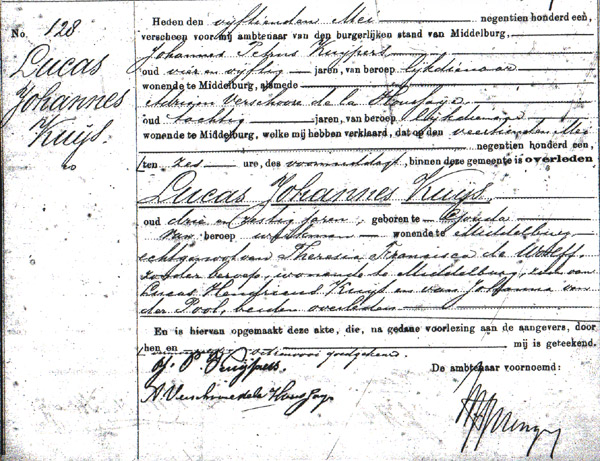 No. 128
Lucas
Johannes
Kuijs.
Heden den vijftienden Mei negentien honderd een,
verscheen voor mij ambtenaar van den burgerlijken stand van Middelburg,
Johannes Petrus Kuijpers
oud vier en vijftig jaren, van beroep lijkdienaar
wonende te Middelburg, alsmede
Adriaan Verschoore de la Houssaije
oud tachtig jaren, van beroep lijkdienaar
wonende te Middelburg, welke mij hebben verklaard, dat op den veertienden Mei
negentien honderd een,
ten zes ure, des voormiddags, binnen deze gemeente is overleden
Lucas Johannes Kuijs,
oud drie en zestig jaren, geboren te Gouda
van beroep wonende te Middelburg,
echtgenoot van Theresia Francisca de Wolff,
zonder beroep, wonende te Middelburg, zoon van
Lucas Hendricus Kuijs en van Johanna van
der Pool, beiden overleden
En is hiervan opgemaakt deze akte, die, na gedane voorlezing aan de aangevers, door
hen en mij is geteekend.
goedgekeurd.
J. P. Kuijpers
De ambtenaar voornoemd:
A Verschoore de la Houssaije